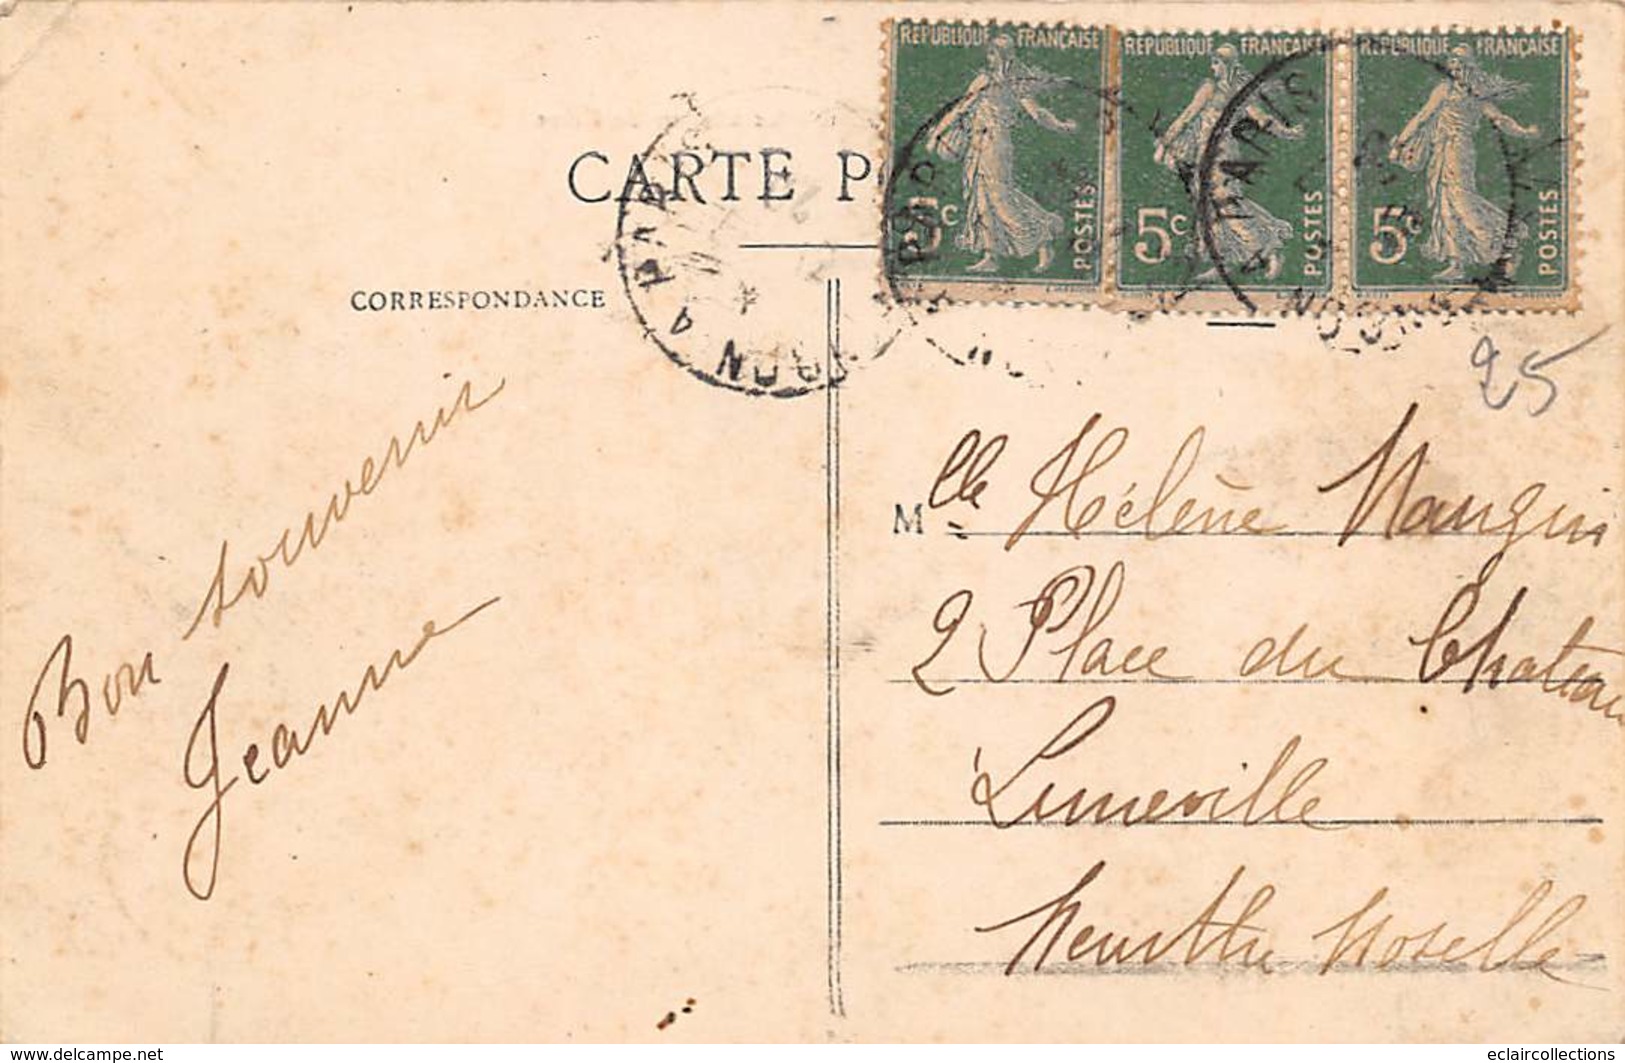 REPUBLIQUE FRANÇAISE
REPUBLIQUE FRANÇAISE
REPUBLIQUE FRANÇAISE
5c POSTES
5c POSTES
5c POSTES
CARTE P
PARIS
CORRESPONDANCE
25
Bon souvenir
Jeanne
Mlle Hélène Mangin
2 Place du Chateau
Luneville
Meurthe Moselle
www.delcampe.net
eclaircollections